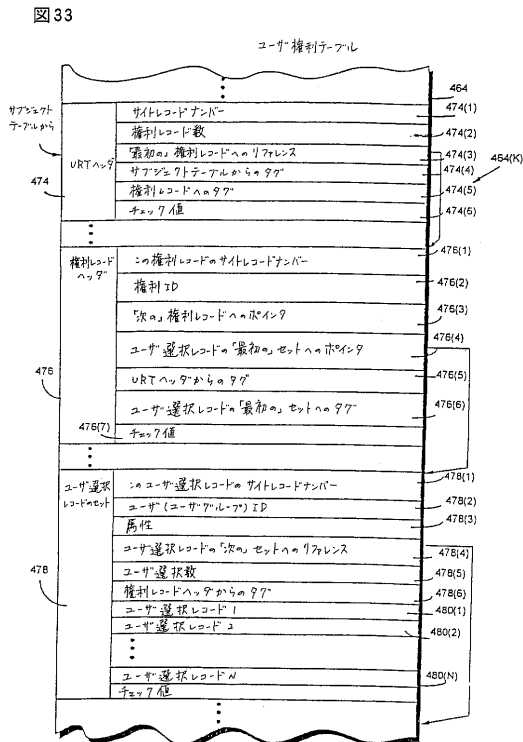 図33
ユーザ権利テーブル
464
サブジェクト
テーブルから
URTヘッダ
474
サイトレコードナンバー
474(1)
権利レコード数
474(2)
「最初の」権利レコードへのリファレンス
474(3)
サブジェクトテーブルからのタグ
474(4)
権利レコードへのタグ
474(5)
チェック値
474(6)
464(K)
権利レコード
ヘッダ
476
この権利レコードのサイトレコードナンバー
476(1)
権利ID
476(2)
「次の」権利レコードへのポインタ
476(3)
ユーザ選択レコードの「最初の」セットへのポインタ
476(4)
URTヘッダからのタグ
476(5)
ユーザ選択レコードの「最初の」セットへのタグ
476(6)
476(7)
チェック値
ユーザ選択
レコードのセット
478
このユーザ選択レコードのサイトレコードナンバー
478(1)
ユーザ(ユーザグループ)ID
478(2)
属性
478(3)
ユーザ選択レコードの「次の」セットへのリファレンス
478(4)
ユーザ選択数
478(5)
権利レコードヘッダからのタグ
478(6)
ユーザ選択レコード1
480(1)
ユーザ選択レコード2
480(2)
ユーザ選択レコードN
480(N)
チェック値